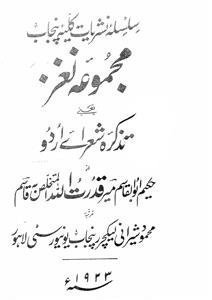 سلسلۂ نشریات کلیۂ پنجاب
مجموعۂ نغز
یعنی
تذکرۂ شعرائے اردو
از
حکیم ابو القاسم میر قدرت اللہ المتخلص بہ قاسم
مرتبہ
محمود شیرانی لیکچرر پنجاب یونیورسٹی لاہور
۱۹۳۳ء